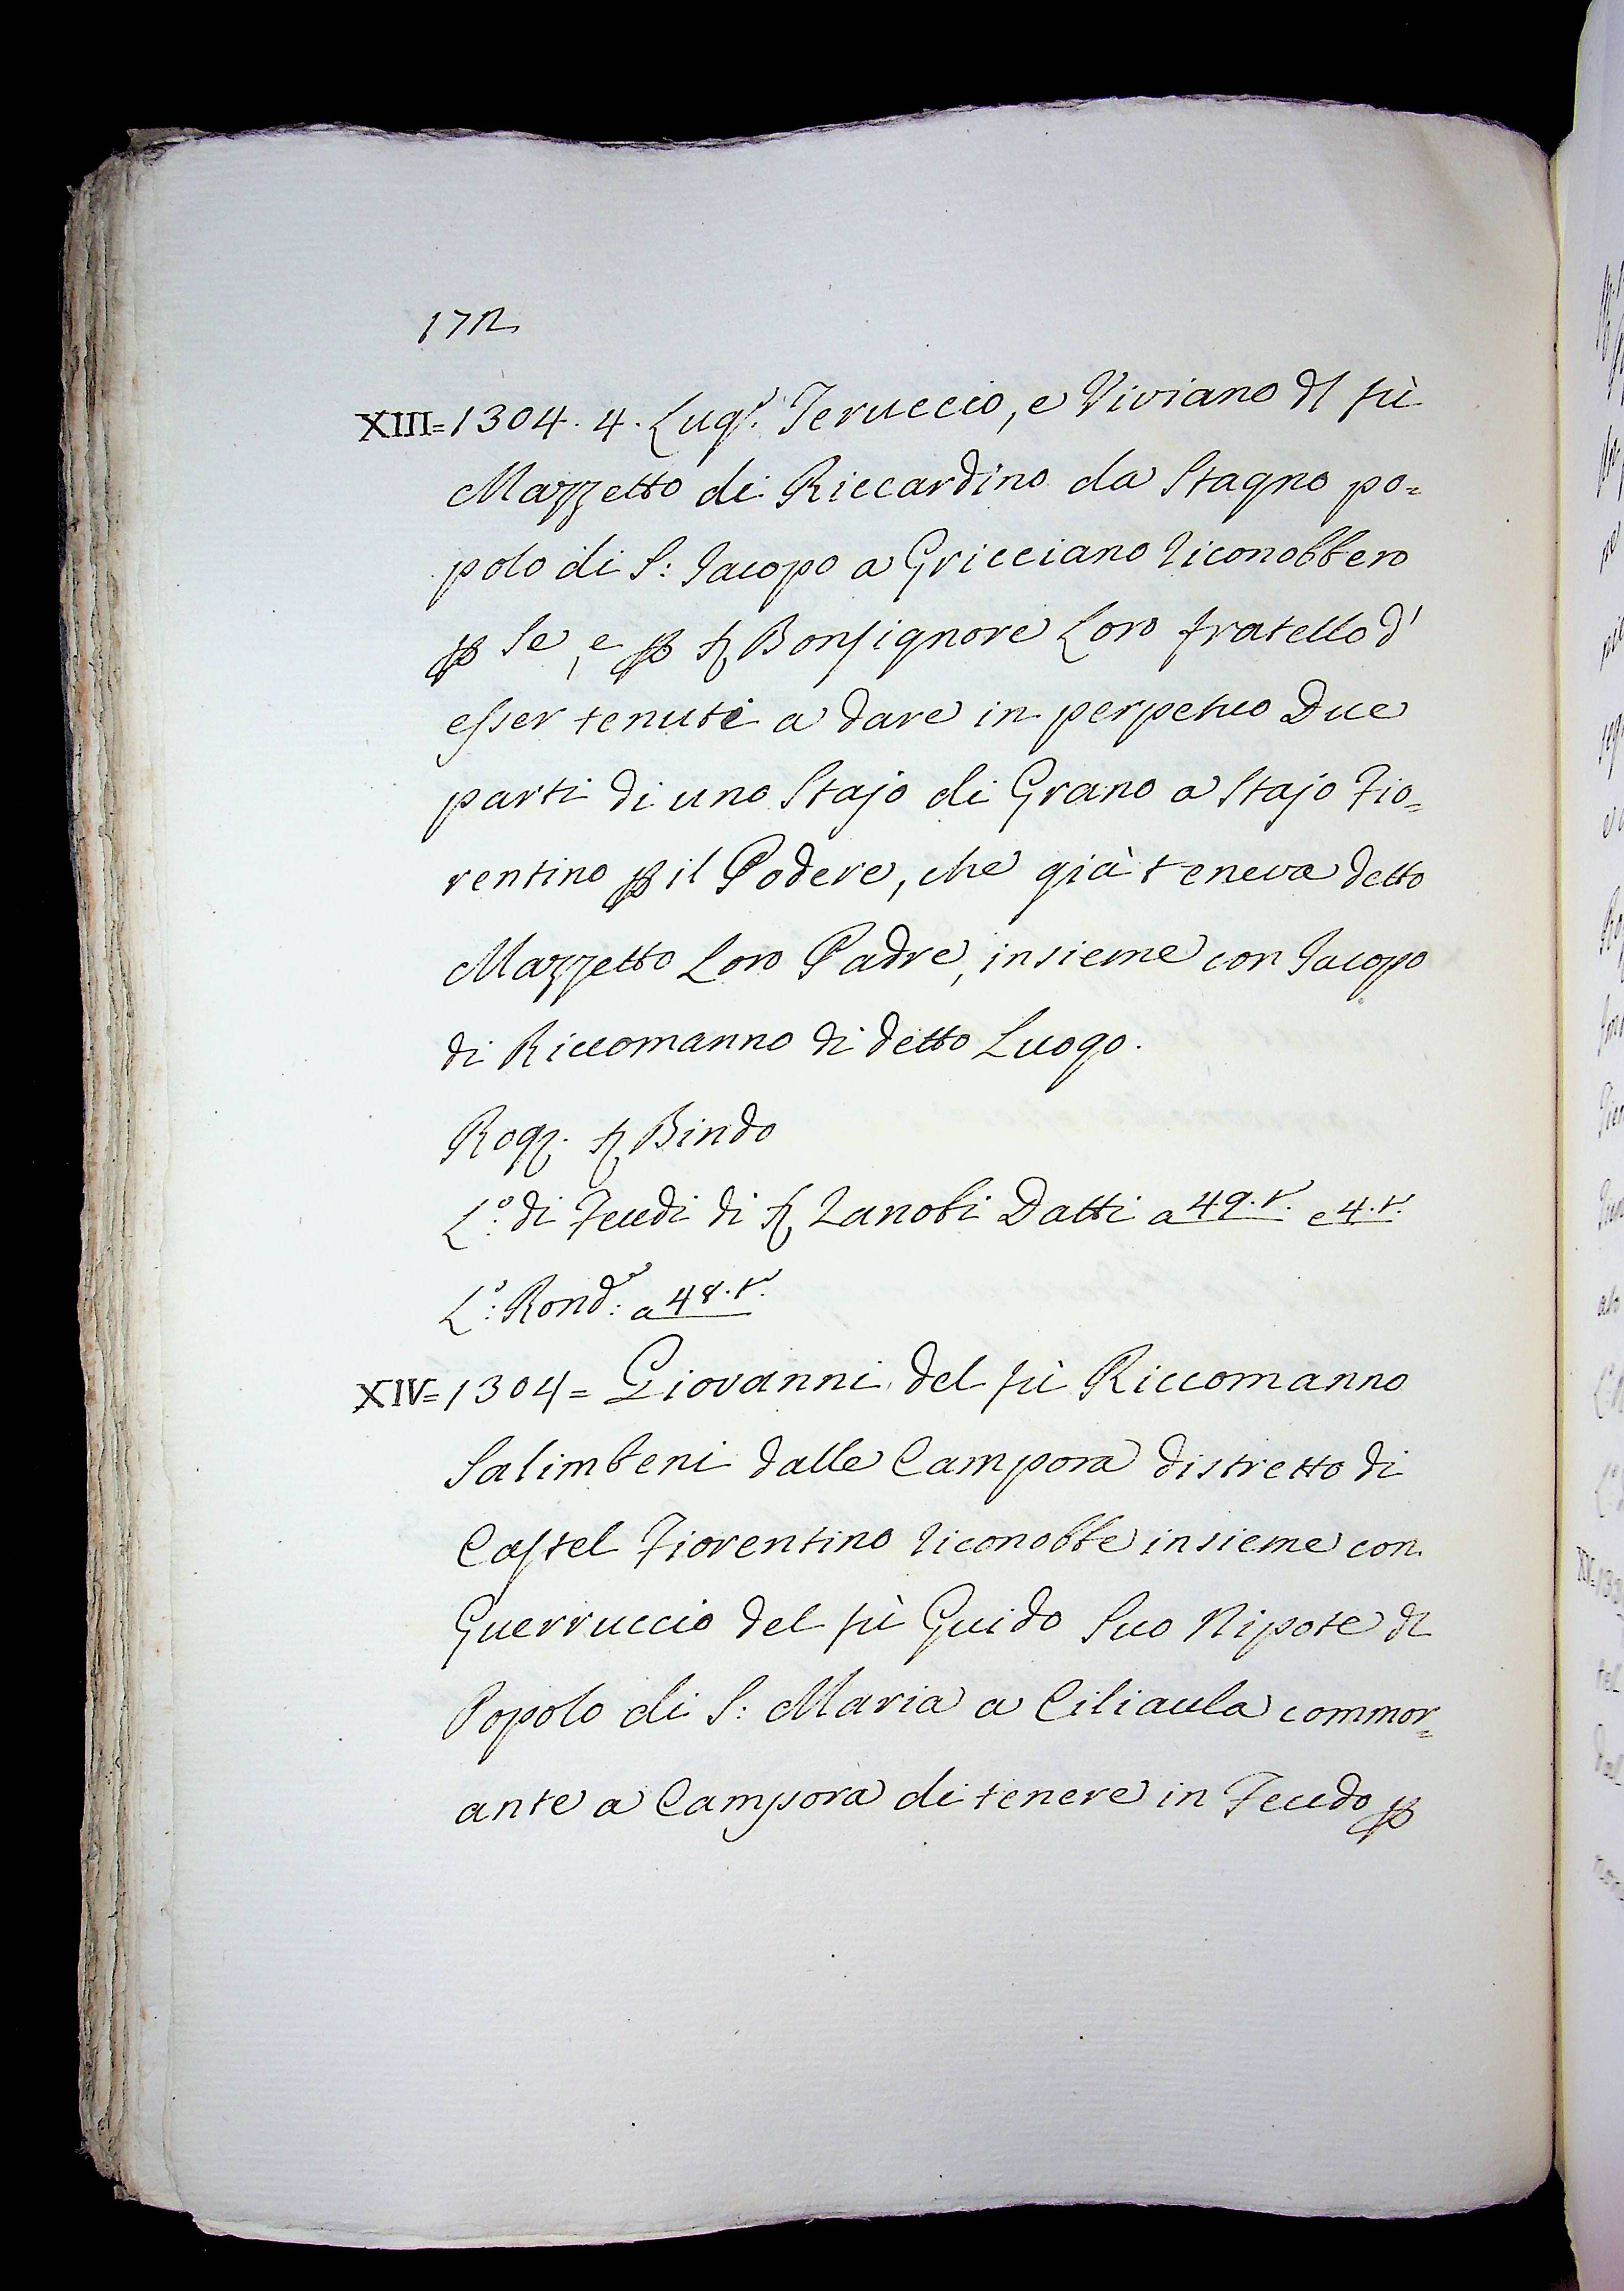 172
XIII=1304. 4. Lugº. Feruccio, e Viviano dl fù
Mazzetto di Riccardino da Stagno po=
polo di S: Iacopo a Gricciano riconobbero
ꝑ Se, e ꝑ Sr Bonsignore Loro fratello d'
esser tenuti a dare in perpetuo Due
parti di uno Stajo di Grano a Stajo Fio=
rentino ꝑ il Podere, che già teneva detto
Mazzetto Loro Padre, insieme con Iacopo
di Riccomanno di detto Luogo.
Rog. Sr Bindo
Lº. di Feudi di Sr Zanobi Datti a 49.t. e 4.t.
Lº: Rond: a 48.t.
XIV=1304= Giovanni del fù Riccomanno
Salimbeni dalle Campora distretto di
Castel Fiorentino riconobbe insieme con
Guerruccio del fù Guido Suo Nipote dl
Popolo di S: Maria a Ciliaula commor=
ante a Campora di tenere in Feudo ꝑ